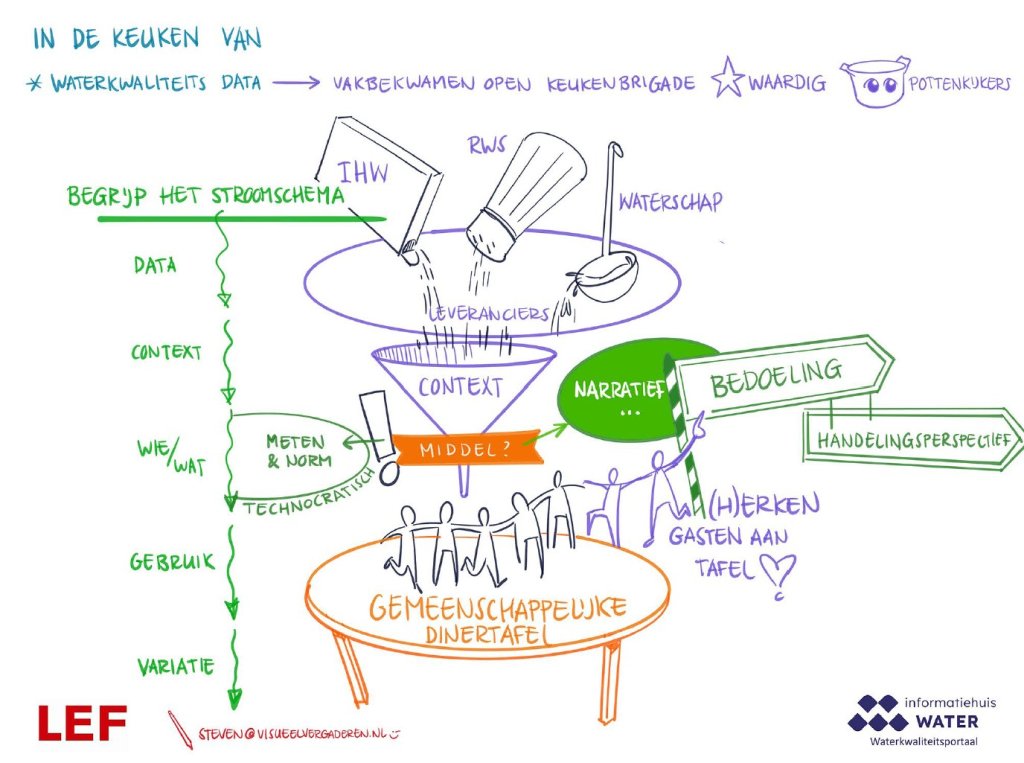 IN DE KEUKEN VAN
* WATERKWALITEITS DATA → VAKBEKWAMEN OPEN KEUKENBRIGADE ☆ WAARDIG POTTENKIJKERS
IHW
RWS
WATERSCHAP
BEGRIJP HET STROOMSCHEMA
DATA
LEVERANCIERS
CONTEXT
CONTEXT
NARRATIEF
...
BEDOELING
HANDELINGSPERSPECTIEF
WIE/
WAT
METEN
& NORM
TECHNOCRATISCH
!
MIDDEL?
(H)ERKEN
GASTEN AAN
TAFEL
GEBRUIK
GEMEENSCHAPPELIJKE
DINERTAFEL
VARIATIE
LEF
STEVEN@VISUEELVERGADEREN.NL
informatiehuis
WATER
Waterkwaliteitsportaal